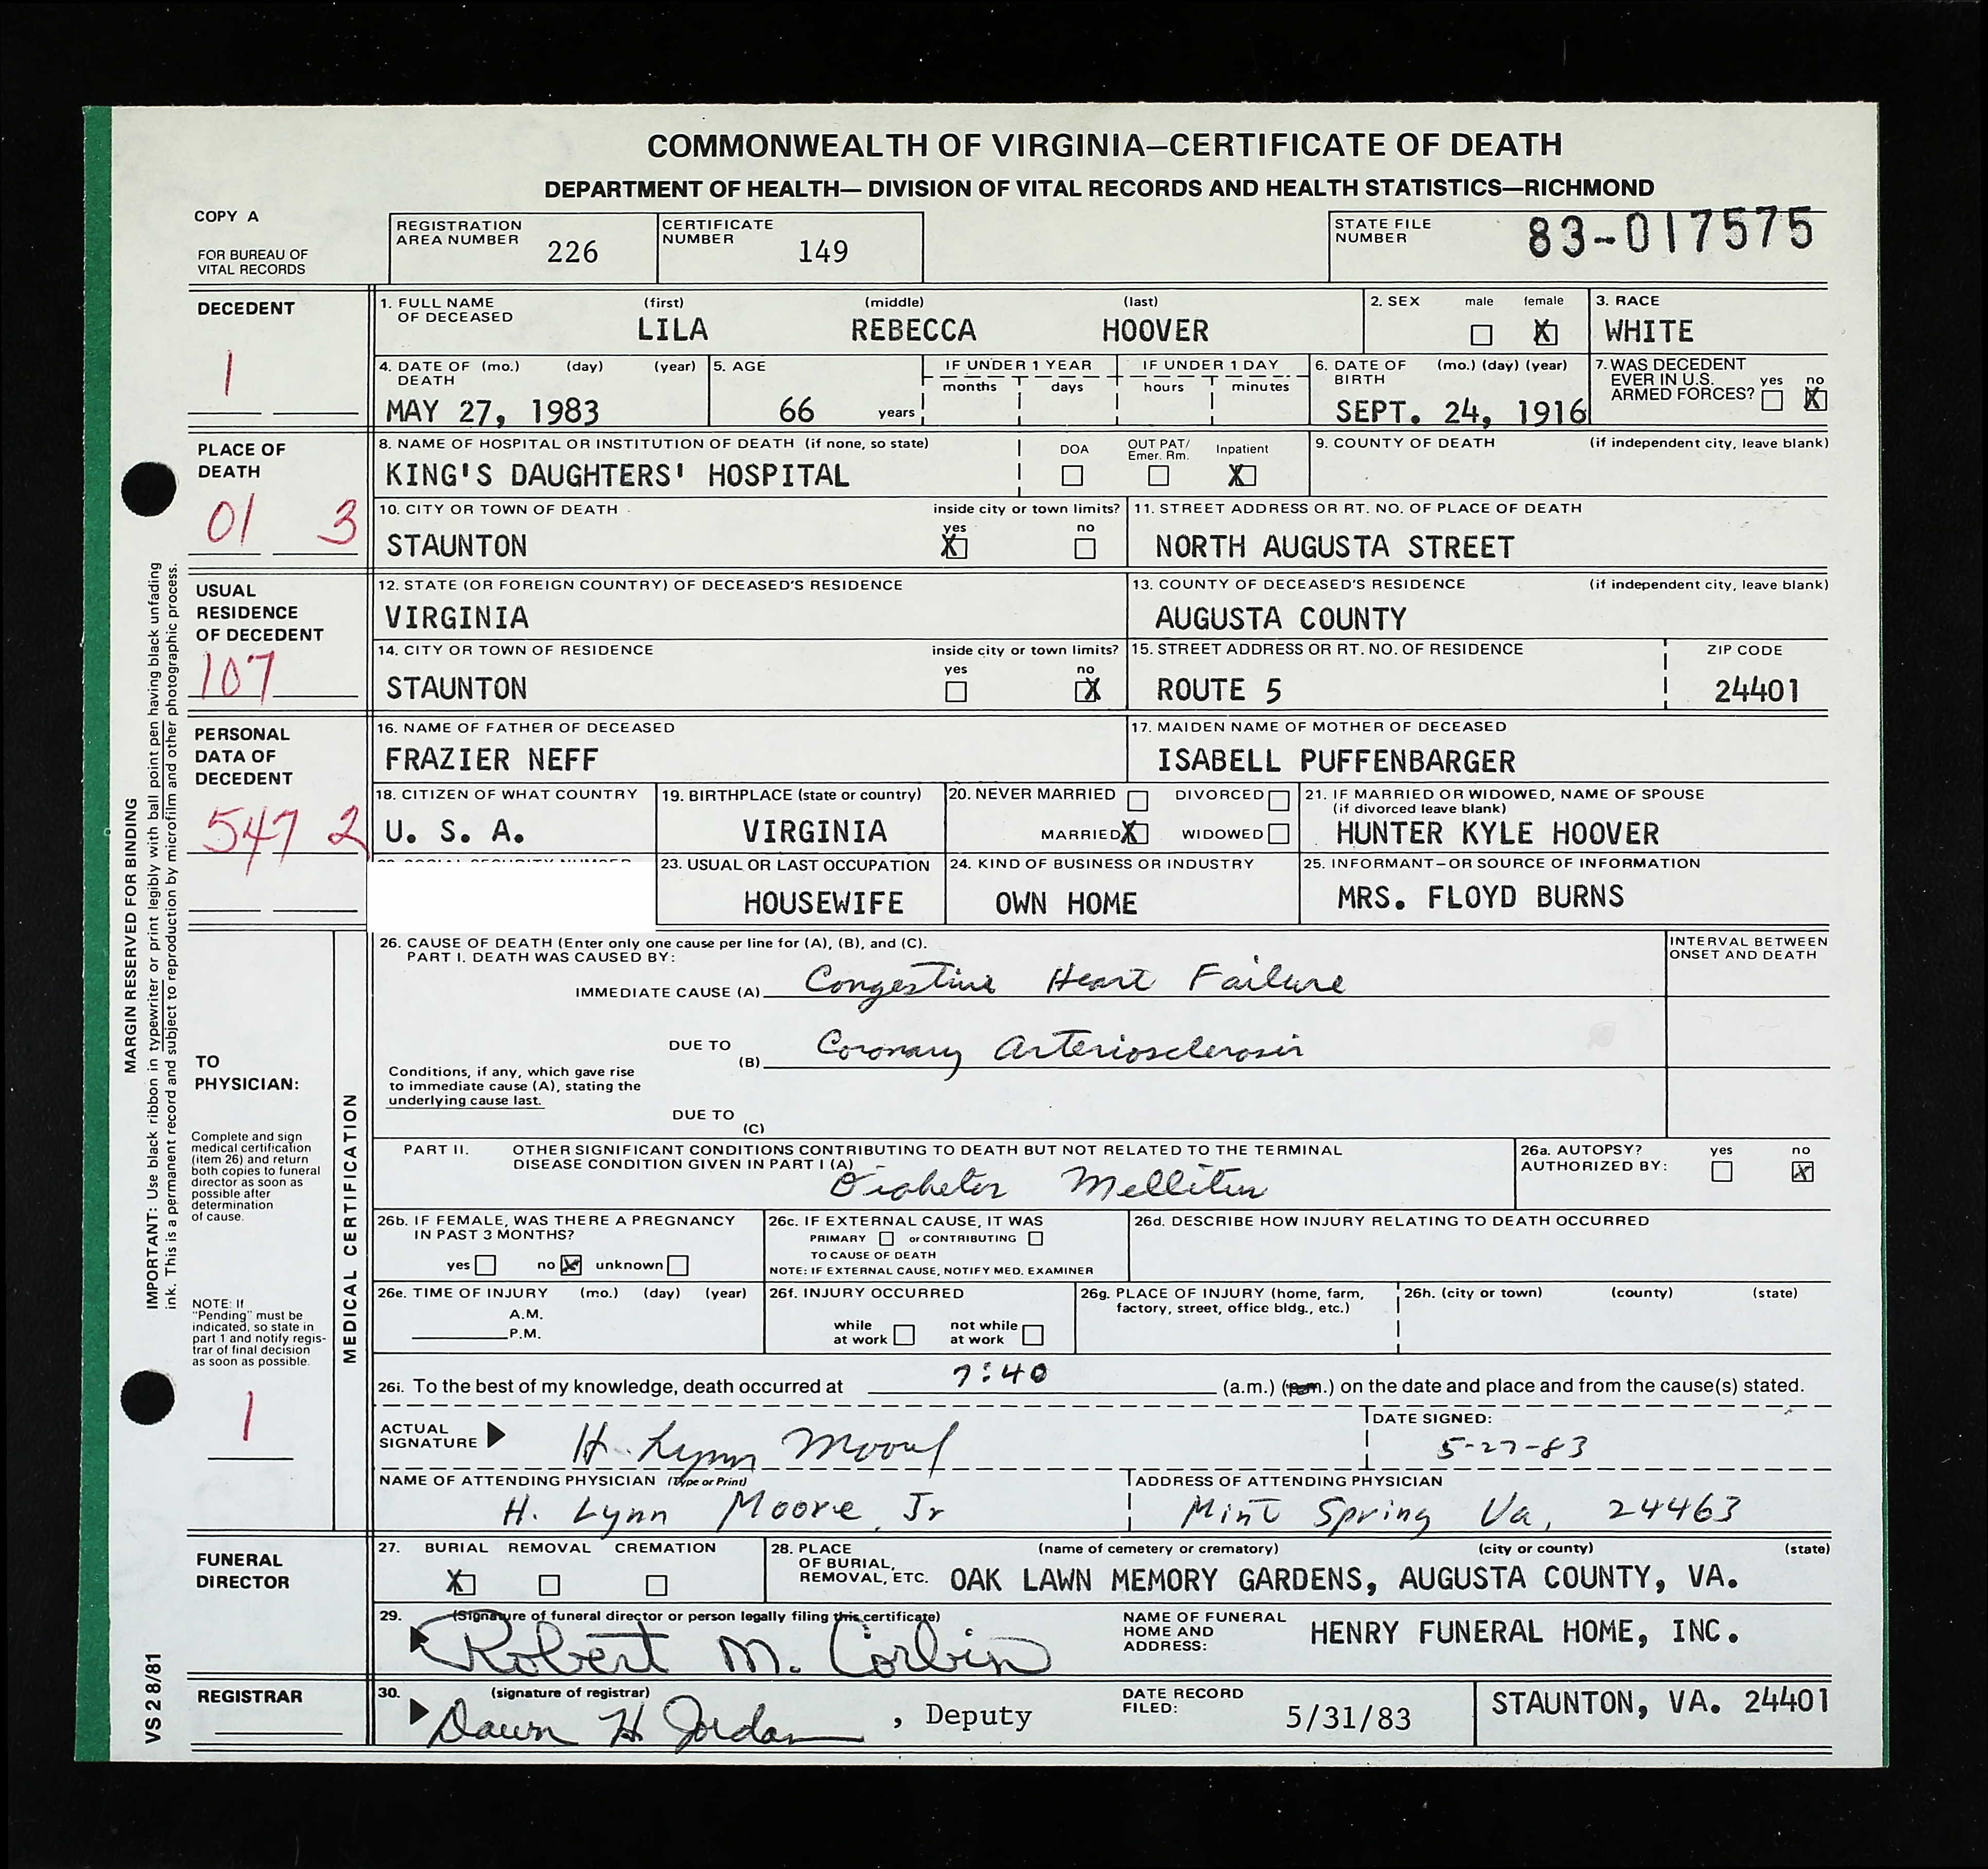 COMMONWEALTH OF VIRGINIA—CERTIFICATE OF DEATH
DEPARTMENT OF HEALTH— DIVISION OF VITAL RECORDS AND HEALTH STATISTICS—RICHMOND
COPY A
FOR BUREAU OF
VITAL RECORDS
REGISTRATION
AREA NUMBER 226
CERTIFICATE
NUMBER 149
STATE FILE
NUMBER 83-017575
DECEDENT
1
1. FULL NAME (first) (middle) (last)
OF DECEASED
LILA REBECCA HOOVER
2. SEX male female
X
3. RACE
WHITE
4. DATE OF (mo.) (day) (year)
DEATH
MAY 27, 1983
5. AGE
66 years
IF UNDER 1 YEAR
months days
IF UNDER 1 DAY
hours minutes
6. DATE OF (mo.) (day) (year)
BIRTH
SEPT. 24, 1916
7. WAS DECEDENT
EVER IN U.S. yes no
ARMED FORCES? X
PLACE OF
DEATH
01 3
8. NAME OF HOSPITAL OR INSTITUTION OF DEATH (if none, so state)
KING'S DAUGHTERS' HOSPITAL
DOA
OUT PAT/
Emer. Rm.
Inpatient
X
9. COUNTY OF DEATH (if independent city, leave blank)
10. CITY OR TOWN OF DEATH inside city or town limits?
yes no
STAUNTON X
11. STREET ADDRESS OR RT. NO. OF PLACE OF DEATH
NORTH AUGUSTA STREET
USUAL
RESIDENCE
OF DECEDENT
107
12. STATE (OR FOREIGN COUNTRY) OF DECEASED'S RESIDENCE
VIRGINIA
13. COUNTY OF DECEASED'S RESIDENCE (if independent city, leave blank)
AUGUSTA COUNTY
14. CITY OR TOWN OF RESIDENCE inside city or town limits?
yes no
STAUNTON X
15. STREET ADDRESS OR RT. NO. OF RESIDENCE ZIP CODE
ROUTE 5 24401
PERSONAL
DATA OF
DECEDENT
547 2
16. NAME OF FATHER OF DECEASED
FRAZIER NEFF
17. MAIDEN NAME OF MOTHER OF DECEASED
ISABELL PUFFENBARGER
18. CITIZEN OF WHAT COUNTRY
U. S. A.
19. BIRTHPLACE (state or country)
VIRGINIA
20. NEVER MARRIED DIVORCED
MARRIED X WIDOWED
21. IF MARRIED OR WIDOWED, NAME OF SPOUSE
(if divorced leave blank)
HUNTER KYLE HOOVER
23. USUAL OR LAST OCCUPATION
HOUSEWIFE
24. KIND OF BUSINESS OR INDUSTRY
OWN HOME
25. INFORMANT—OR SOURCE OF INFORMATION
MRS. FLOYD BURNS
TO
PHYSICIAN:
Complete and sign
medical certification
(item 26) and return
both copies to funeral
director as soon as
possible after
determination
of cause.
NOTE: If
"Pending" must be
indicated, so state in
part 1 and notify regis-
trar of final decision
as soon as possible.
1
MEDICAL CERTIFICATION
26. CAUSE OF DEATH (Enter only one cause per line for (A), (B), and (C).
PART I. DEATH WAS CAUSED BY:
INTERVAL BETWEEN
ONSET AND DEATH
IMMEDIATE CAUSE (A) Congestive Heart Failure
DUE TO
(B) Coronary Arteriosclerosis
Conditions, if any, which gave rise
to immediate cause (A), stating the
underlying cause last.
DUE TO
(C)
PART II. OTHER SIGNIFICANT CONDITIONS CONTRIBUTING TO DEATH BUT NOT RELATED TO THE TERMINAL
DISEASE CONDITION GIVEN IN PART I (A)
Diabetes Mellitus
26a. AUTOPSY? yes no
AUTHORIZED BY: X
26b. IF FEMALE, WAS THERE A PREGNANCY
IN PAST 3 MONTHS?
yes no X unknown
26c. IF EXTERNAL CAUSE, IT WAS
PRIMARY or CONTRIBUTING
TO CAUSE OF DEATH
NOTE: IF EXTERNAL CAUSE, NOTIFY MED. EXAMINER
26d. DESCRIBE HOW INJURY RELATING TO DEATH OCCURRED
26e. TIME OF INJURY (mo.) (day) (year)
A.M.
P.M.
26f. INJURY OCCURRED
while
at work
not while
at work
26g. PLACE OF INJURY (home, farm,
factory, street, office bldg., etc.)
26h. (city or town) (county) (state)
26i. To the best of my knowledge, death occurred at 7:40 (a.m.) (p.m.) on the date and place and from the cause(s) stated.
ACTUAL
SIGNATURE H. Lynn Moore Jr
DATE SIGNED:
5-27-83
NAME OF ATTENDING PHYSICIAN (Type or Print)
H. Lynn Moore, Jr
ADDRESS OF ATTENDING PHYSICIAN
Mint Spring Va, 24463
FUNERAL
DIRECTOR
27. BURIAL REMOVAL CREMATION
X
28. PLACE (name of cemetery or crematory) (city or county) (state)
OF BURIAL,
REMOVAL, ETC. OAK LAWN MEMORY GARDENS, AUGUSTA COUNTY, VA.
29. (Signature of funeral director or person legally filing this certificate)
Robert M. Corbin
NAME OF FUNERAL
HOME AND
ADDRESS:
HENRY FUNERAL HOME, INC.
REGISTRAR
30. (signature of registrar)
Dawn H Jordan, Deputy
DATE RECORD
FILED: 5/31/83
STAUNTON, VA. 24401
MARGIN RESERVED FOR BINDING
IMPORTANT: Use black ribbon in typewriter or print legibly with ball point pen having black unfading
ink. This is a permanent record and subject to reproduction by microfilm and other photographic process.
VS 2 8/81